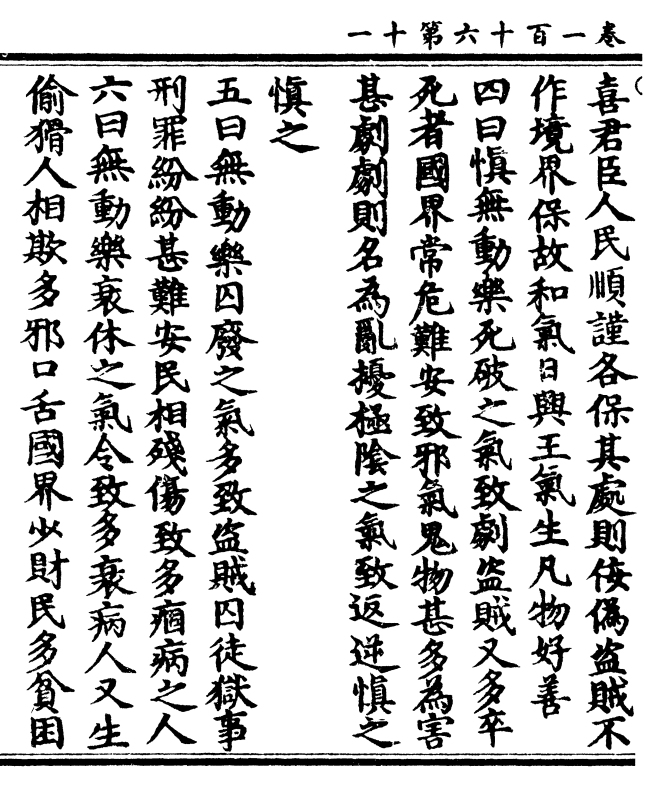 卷一百十六第十一
喜君臣人民順謹各保其處則佞偽盜賊不
作境界保故和氣日興王氣生凡物好善
四曰慎無動樂死破之氣致劇盜賊又多卒
死者國界常危難安致邪氣鬼物甚多為害
甚劇劇則名為亂擾極陰之氣致返逆慎之
慎之
五曰無動樂囚廢之氣多致盜賊囚徒獄事
刑罪紛紛甚難安民相殘傷致多痼病之人
六曰無動樂衰休之氣令致多衰病人又生
偷猾人相欺多邪口舌國界少財民多貧困